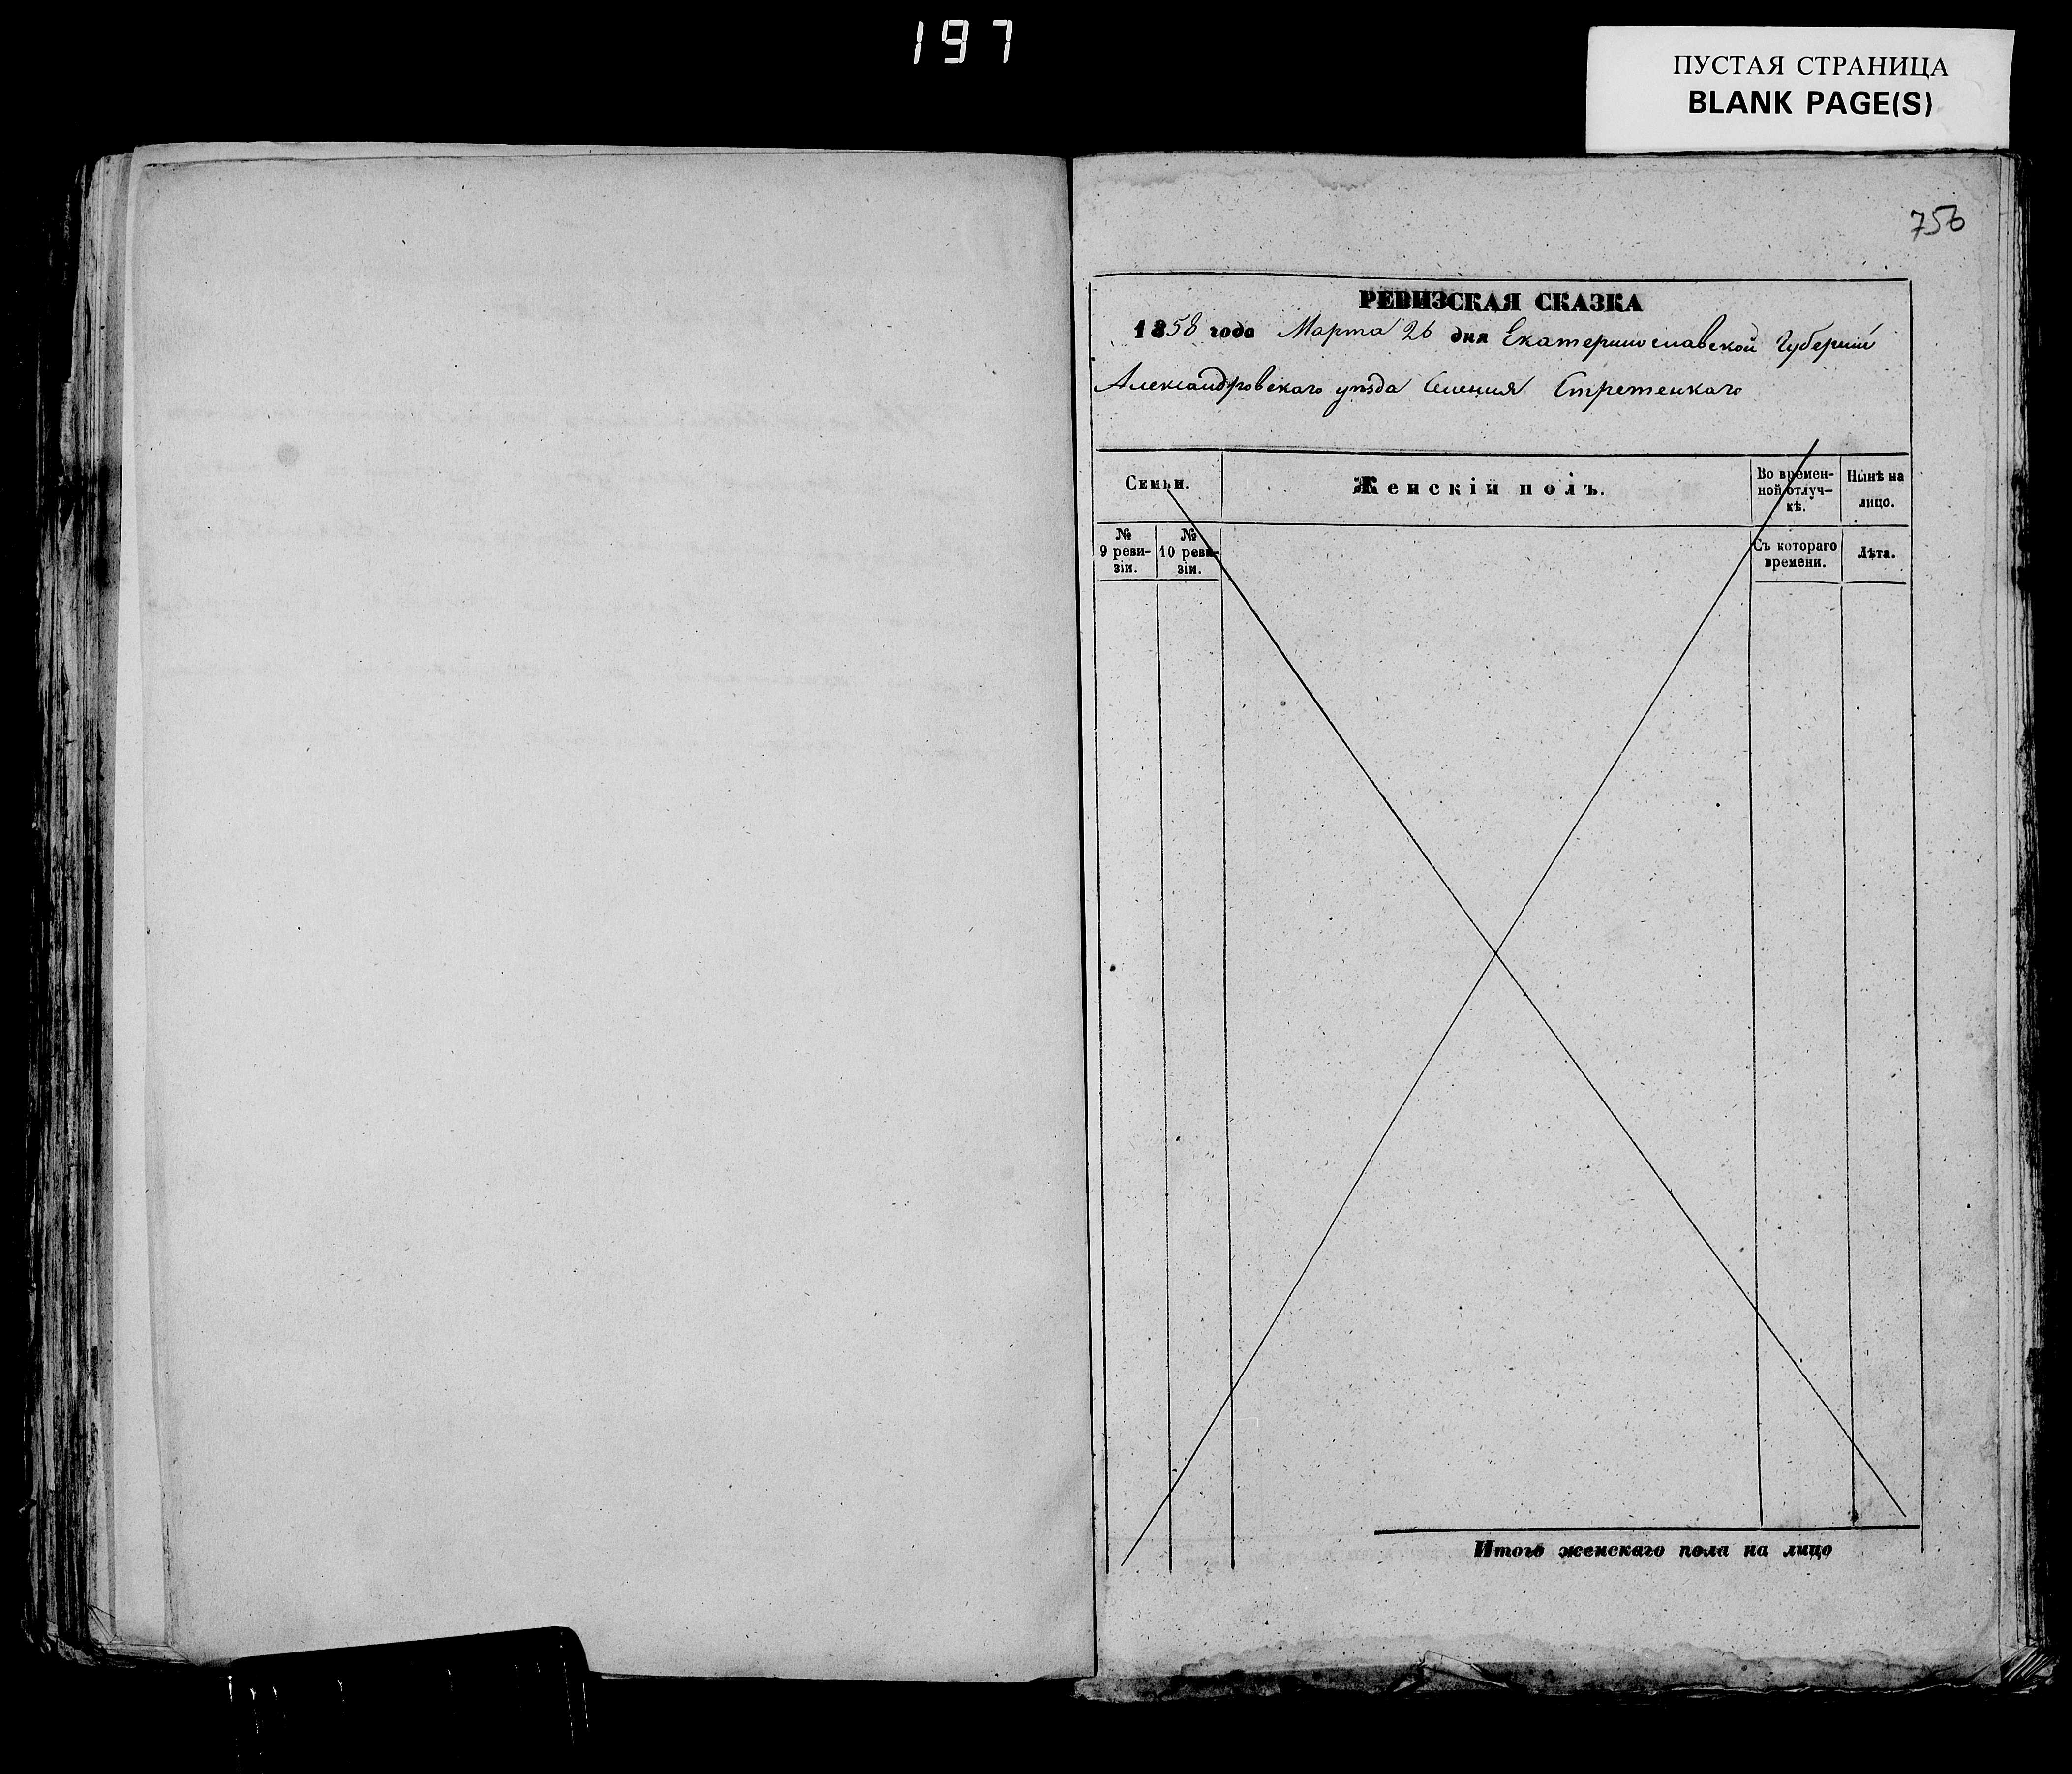 197
ПУСТАЯ СТРАНИЦА
BLANK PAGE(S)
756
РЕВИЗСКАЯ СКАЗКА
1858 года Марта 26 дня Екатеринославской Губерніи
Александровскаго уѣзда Селенія Стретенскаго
Семьи.
Женскій полъ.
Во времен-
ной отлуч-
кѣ.
Нынѣ на
лицо.
№
9 реви-
зіи.
№
10 реви-
зіи.
Съ котораго
времени.
Лѣта.
Итого женскаго пола на лицо